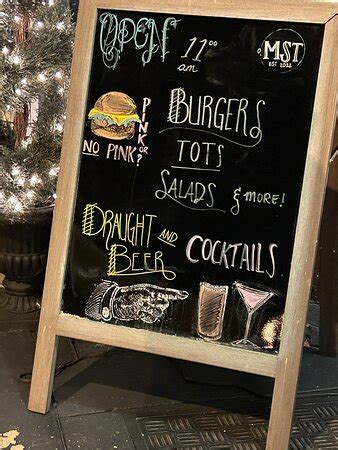 OPEN 11°° am
MST
EST 2022
PINK OR
NO PINK?
BURGERS
TOTS
SALADS & MORE!
DRAUGHT AND
BEER
COCKTAILS